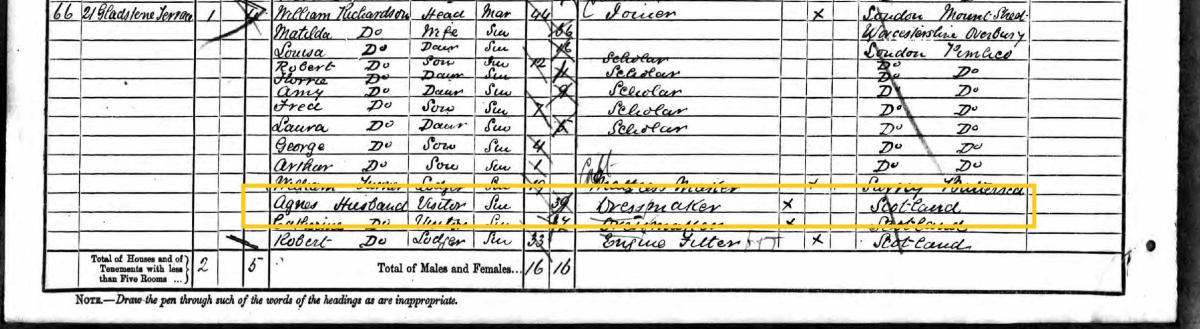 66 21 Gladstone Terrace 1 4 William Richardson Head Mar 44 Joiner x London Mount Street
Matilda Do Wife Sin 36 Worcestershire Overbury
Louisa Do Daur Sin 16 London Pimlico
Robert Do Son Sin 12 Scholar Do Do
Florrie Do Daur Sin 11 Scholar Do Do
Amy Do Daur Sin 9 Scholar Do Do
Fred Do Son Sin 7 Scholar Do Do
Laura Do Daur Sin 5 Scholar Do Do
George Do Son Sin 4 Do Do
Arthur Do Son Sin 1 Do Do
William Turner Lodger Sin Mattress Maker x Surrey Battersea
Agnes Husband Visitor Sin 39 Dressmaker x Scotland
Catherine Do Visitor Sin 34 x Scotland
Robert Do Lodger Sin 33 Engine Fitter x Scotland
Total of Houses and of Tenements with less than Five Rooms ...} 2 5 Total of Males and Females... 16 16
NOTE.—Draw the pen through such of the words of the headings as are inappropriate.